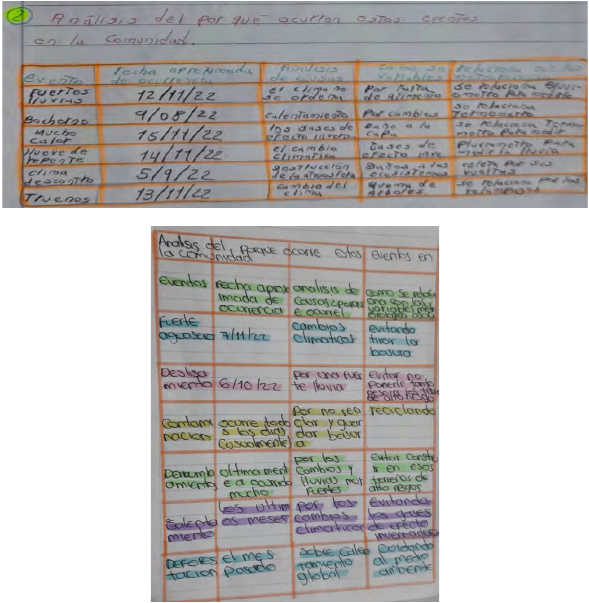 ② Análisis del por qué ocurren estos eventos
en la Comunidad.
evento fecha aproximada de ocurrencia Análisis de causas variables
fuertes lluvias 12/11/22 el clima no se ordena por falta de Alimento se relaciona
Bochorno 9/08/22 Calentamiento Por cambios se relaciona Termometro
Mucho Calor 15/11/22 los gases de efecto inverna Daño a la capa se relaciona Termometro Para medir
llueve de repente 14/11/22 el cambio climatico Gases de efecto inve Pluviometro Para medir lluvia
clima 5/9/22 destrucción de la atmosfera Daños a los ecosistemas veleta Por sus vueltas
Truenos 13/11/22 cambio del clima quema de Arboles se relaciona Por los relampagos
Analisis del Porque ocurre estos eventos en
la comunidad
eventos fecha aprox imada de ocurrencia analisis de causas ¿porqu e ocurre? como se relaci ona con las variables
Fuerte aguasero 7/11/22 cambios climaticos evitando tirar la basura
Desliza miento 6/10/22 por una fuer te lluvia Evitar no Ponerle tanto de alto riesgo
Contami nacion ocurre todo s los dias (usualmente) Por no reci clar y guar dar basur a reciclando
Derrumb amiento ultimament e a ocurrido mucho por los cambios y lluvias muy fuertes Evitar constru ir en esos terrenos de alto riesgos
Calenta miento los ultim os meses por los cambios climaticos Evitando los gases de efecto invernadero
DEFORES tacion el mes pasado sobre calen tamiento global Cuidando al medio ambiente